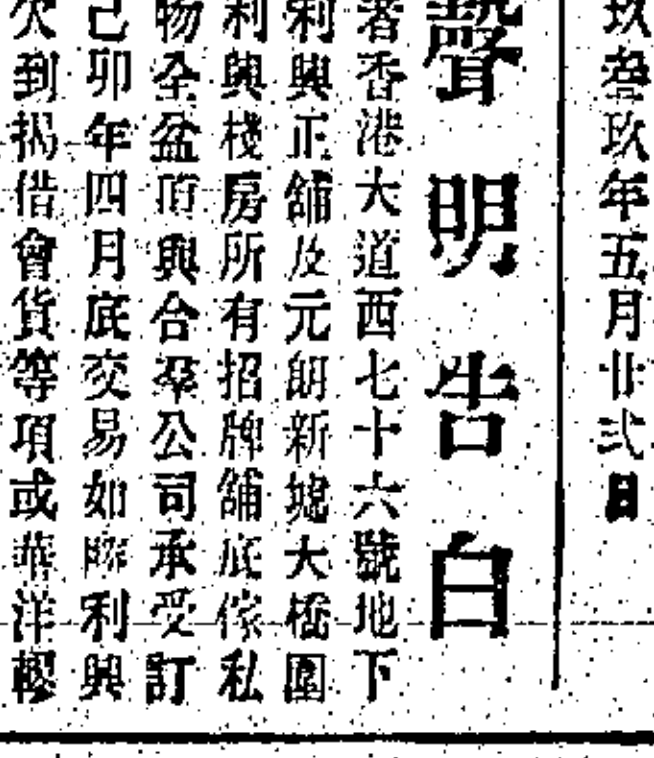 玖叁玖年五月廿弍日
聲明告白
者香港大道西七十六號地下
利興正舖及元朗新墟大橋圍
利興棧房所有招牌舖底傢私
物全盆頂與合羣公司承受訂
己卯年四月底交易如 利興
欠到揭借會貨等項或華洋轇